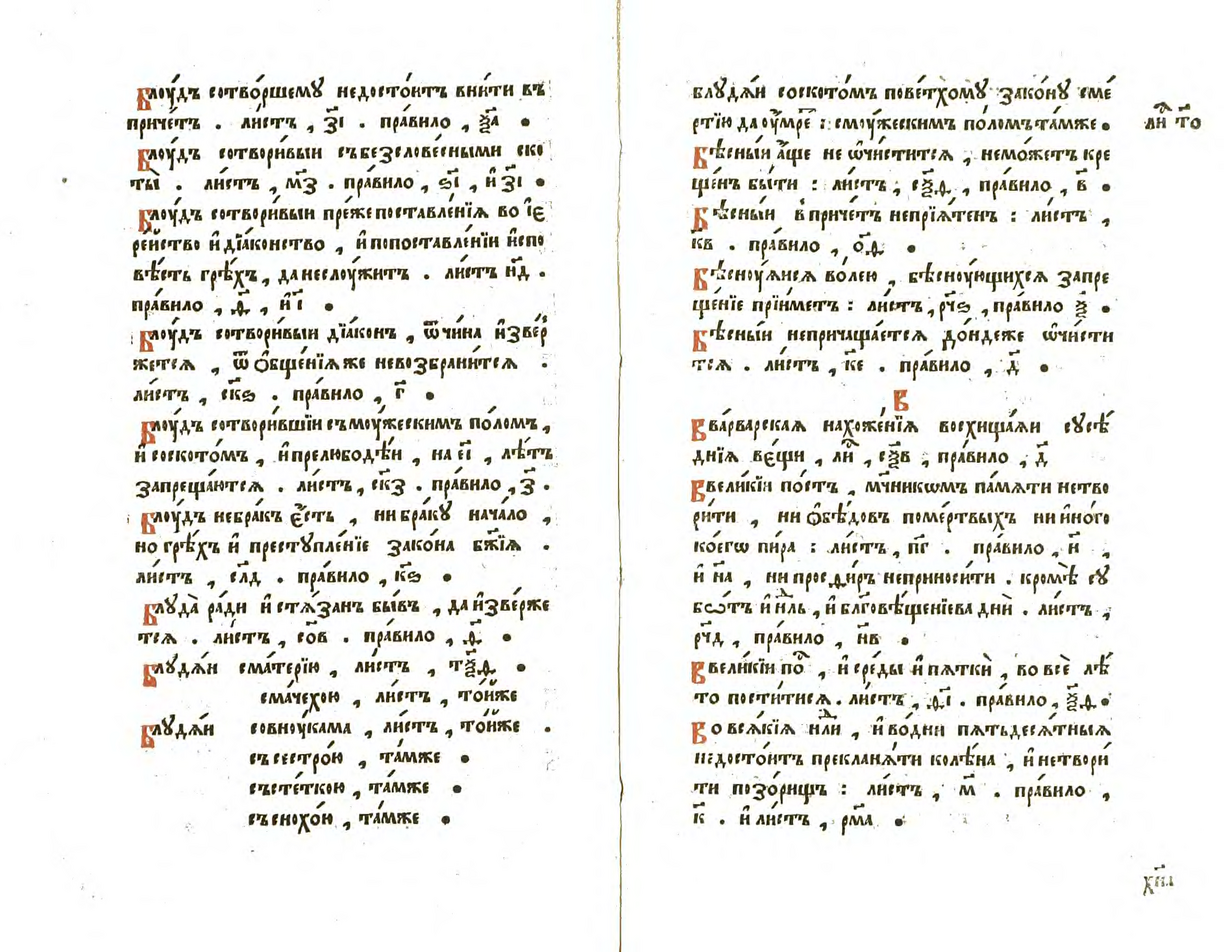 Блоу́дъ сотво́ршемꙋ недосто́итъ вни́ти въ
при́четъ . ли́стъ , з҃і . пра́вило , ѯ҃а .
Блоу́дъ сотвори́выи събезслове́сными ско
ты̀ . ли́стъ , м҃з . пра́вило , ѕ҃і , и҆ з҃і .
Блоу́дъ сотвори́выи пре́жепоставле́нїѧ во і҆є
ре́йство и҆дїа́конство , и҆попоставле́нїи и҆спо
вѣ́сть грѣ́хъ , данеслоу́житъ . ли́стъ н҃д .
пра́вило , ѳ҃ , и҆ и҃і .
Блоу́дъ сотвори́выи дїа́конъ , ѿчи́на и҆зве́р
жетсѧ , ѿ ѻ҆бще́нїѧже невозбрани́тсѧ .
ли́стъ , ск҃ѕ . пра́вило , г҃ .
Блоу́дъ сотвори́вшїи съмоу́жескимъ по́ломъ ,
и҆ соското́мъ , и҆прелюбодѣ́и , на є҃і , лѣ́тъ
запреща́ютсѧ . ли́стъ , ск҃з . пра́вило , з҃ .
Блоу́дъ небра́къ є҆́сть , ни бра́кꙋ нача́ло ,
но грѣ́хъ и҆ престꙋпле́нїе зако́на бж҃їѧ .
ли́стъ , сл҃д . пра́вило , к҃ѕ .
Блꙋда̀ ра́ди и҆ стѧ́занъ бы́въ , да и҆зве́рже
тсѧ . ли́стъ , со҃в . пра́вило , ѳ҃ .
Блꙋдѧ́и сма́терїю , ли́стъ , тѯ҃ѳ .
сма́чехою , ли́стъ , то́йже
Блꙋдѧ́и совноу́кама , ли́стъ , то́йже .
съсестро́ю , та́мже .
състе́ткою , та́мже .
съснохо́ю , та́мже .
блꙋдѧ́и соското́мъ пове́тхомꙋ зако́нꙋ сме́
ртїю да оу҆́мре : смоу́жескимъ по́ломъ та́мже .
ли то
Бѣ́сныи а҆́ще не ѡ҆чи́стится , немо́жетъ кре
ще́нъ бы́ти : ли́стъ , сѯ҃ѳ , пра́вило , в҃ .
Бѣ́сныи впри́четъ непрїѧ́тенъ : ли́стъ ,
к҃в . пра́вило , о҃ѳ .
Бѣсноу́ѧисѧ во́лею , бѣсноу́ющихсѧ запре
ще́нїе прїи́метъ : ли́стъ , рч҃ѕ , пра́вило ѯ҃ .
Бѣ́сныи неприча́щаетсѧ до́ндеже ѡ҆чи́сти
тсѧ . ли́стъ , к҃е . пра́вило , д҃ .
В
Вва́рварскаѧ нахоже́нїѧ восхища́ѧи сꙋсѣ́
днїѧ ве́щи , ли , сѯ҃в , пра́вило , д҃
Ввели́кїи по́стъ , мч҃никѡмъ па́мѧти нетво
ри́ти , ни ѻ҆бѣ́довъ поме́ртвыхъ ни и҆но́го
ко́егѡ пи́ра : ли́стъ , п҃г . пра́вило , и҃ ,
и҆ н҃а , ни просѳи́ръ неприноси́ти . кромѣ̀ сꙋ
бѡ́тъ и҆ н҃ль , и҆ бл҃говѣ́щенїева днѝ . ли́стъ ,
рч҃д , пра́вило , н҃в .
Ввели́кїи по , и҆ сре́ды и҆ пѧ́ткѝ , во всѐ лѣ́
то пости́тисѧ . ли́стъ , ѳ҃і . пра́вило , ѯ҃ѳ .
Во всѧ́кїѧ н҃ли , и҆ во́дни пѧтьдесѧ́тныѧ
недосто́итъ преклана́ти колѣ́на , и҆ нетвори́
ти позо́рищъ : ли́стъ , м҃ . пра́вило ,
к҃ . и҆ ли́стъ , рм҃а .